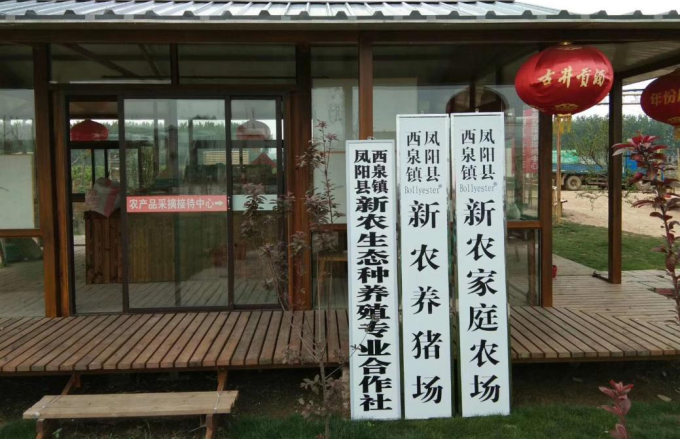 农产品采摘接待中心→
凤阳县
西泉镇
新农生态种养殖专业合作社
凤阳县
西泉镇
Bollyester®
新农养猪场
凤阳县
西泉镇
Bollyester®
新农家庭农场
古井贡酒
年份原